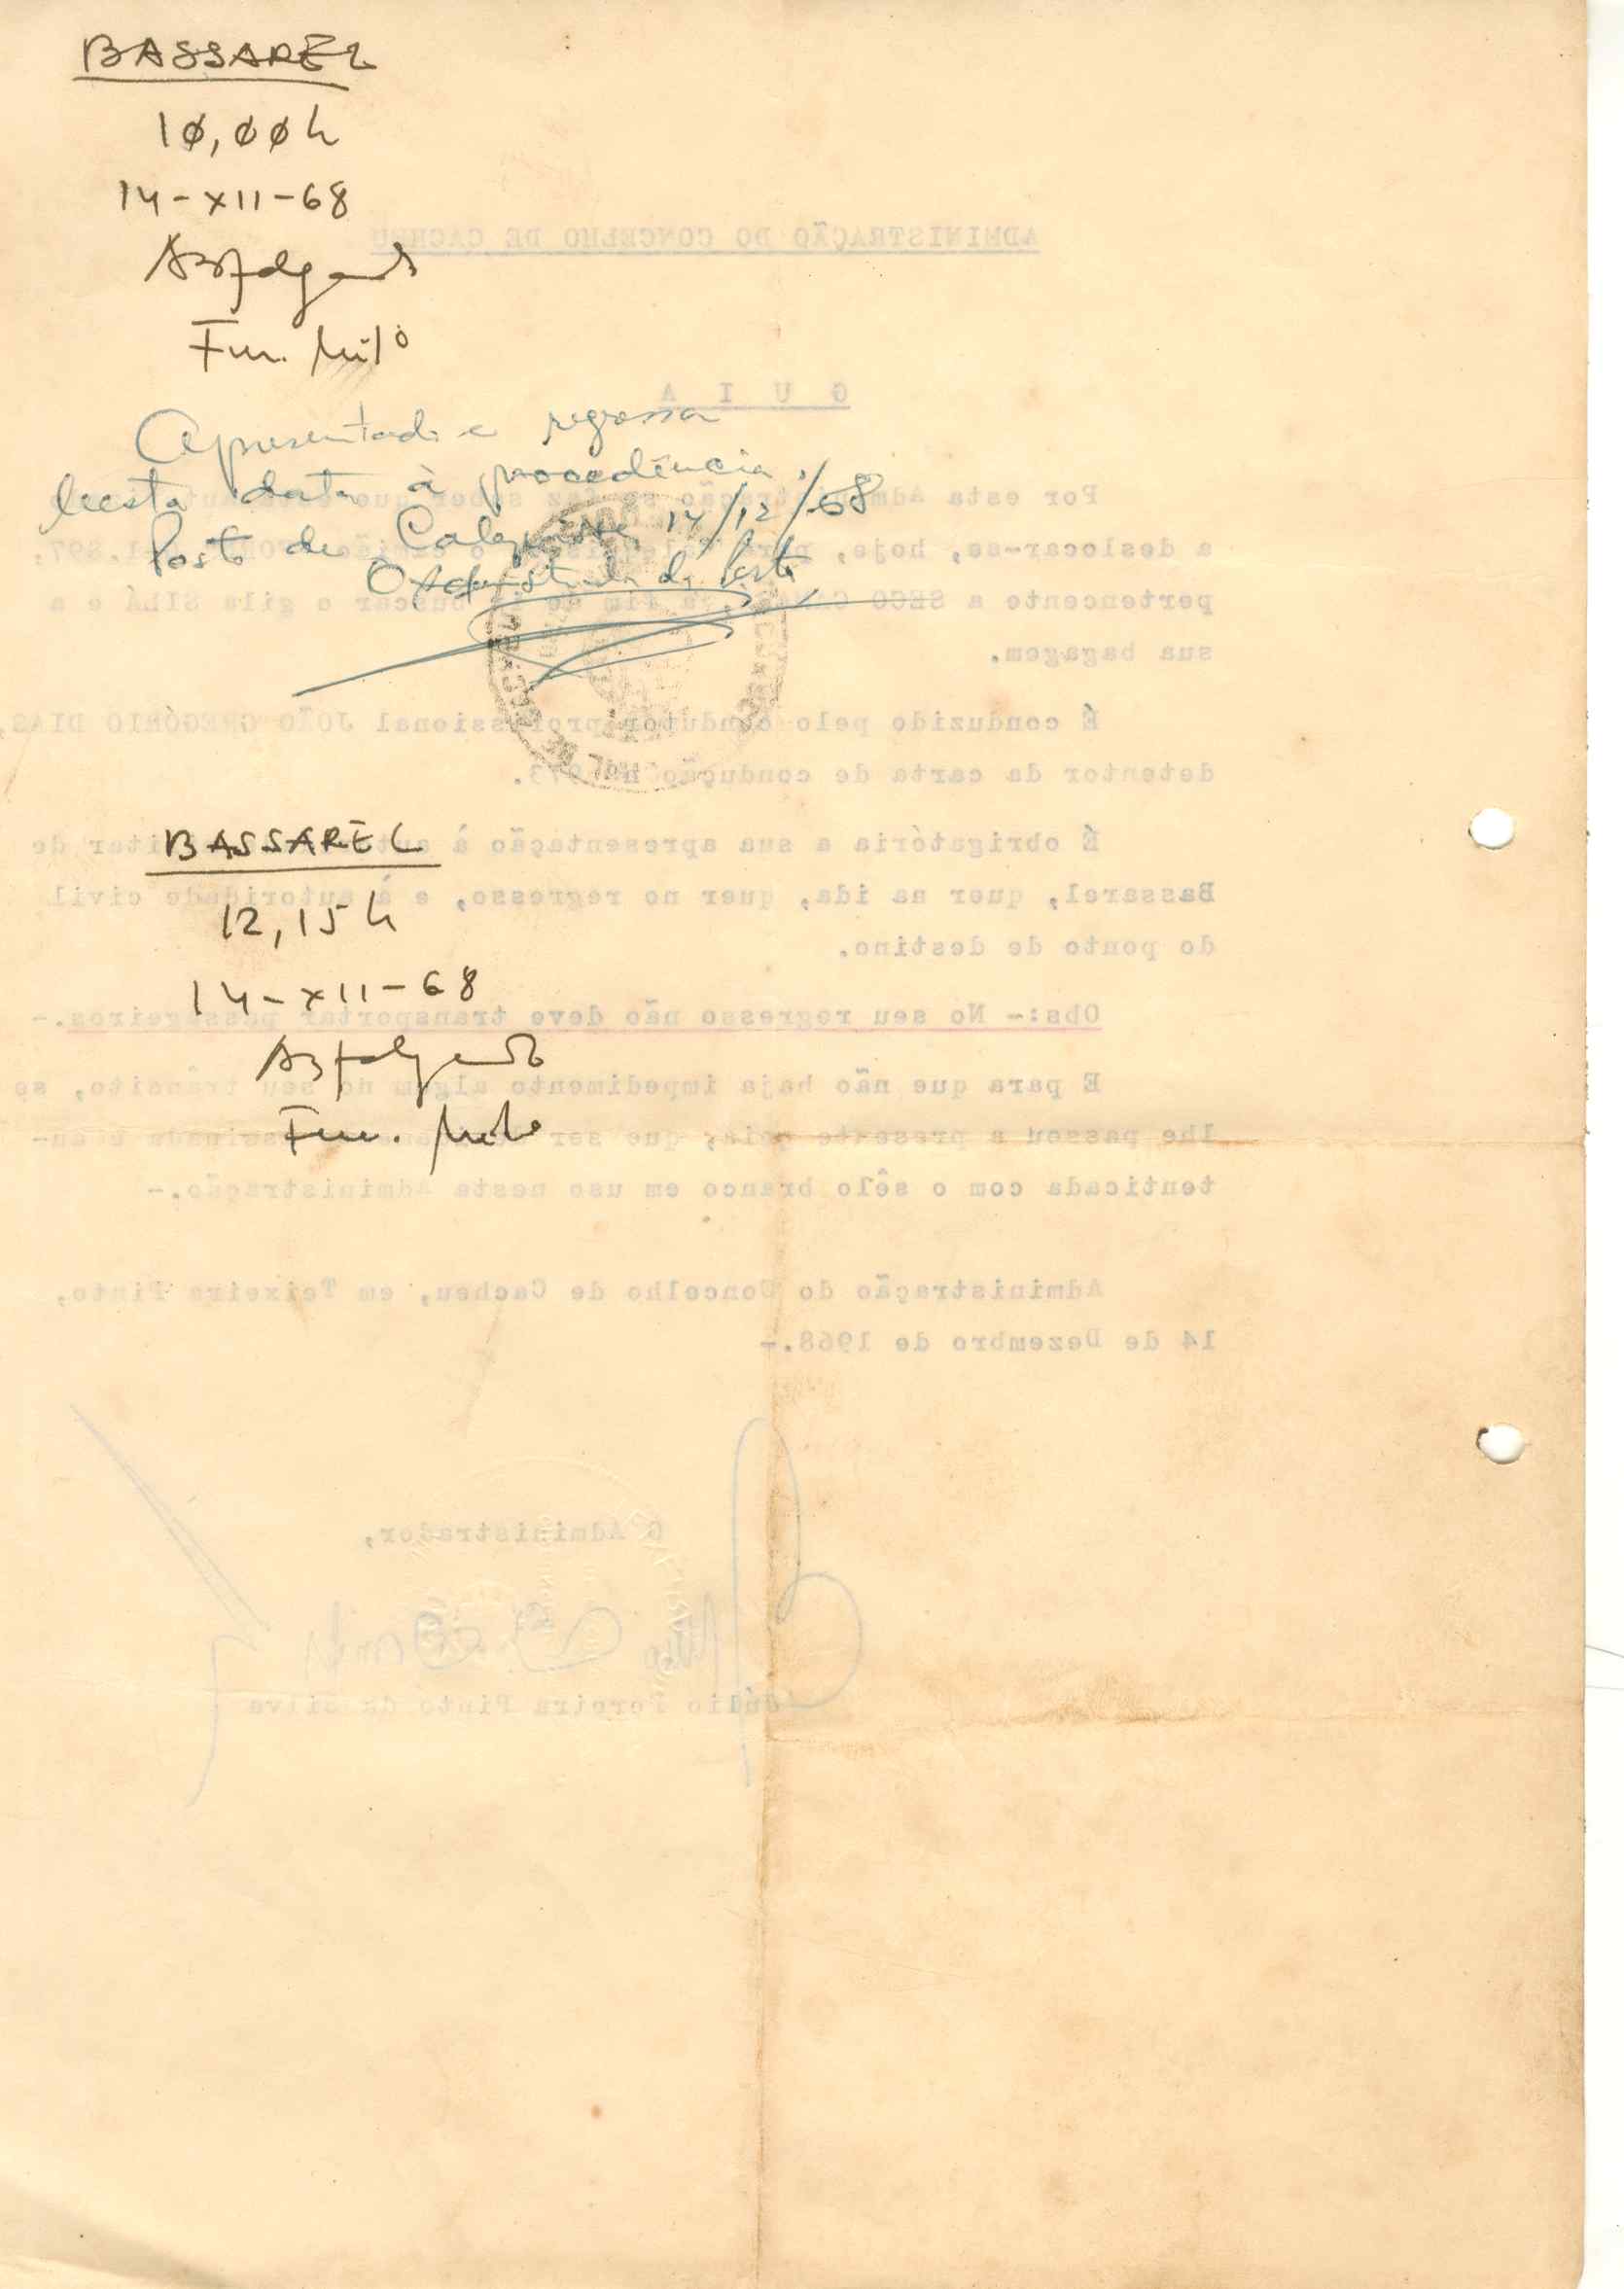 BASSAREL
10,00h
14-XII-68
Fur. Milº
Apresentado e regressa
nesta data à procedência.
Posto de Calequisse, 14/12/68
O do Posto
BASSAREL
12,15h
14-XII-68
Fur. Milº
ADMINISTRAÇÃO DO CONCELHO DE CACHEU
G U I A
Por esta Administração se faz saber que
a deslocar-se, hoje, para o camião 1.897,
pertencente a SECO a fim de ir buscar o gila SILÁ e a
sua bagagem.
É conduzido pelo condutor profissional JOÃO GREGÓRIO DIAS,
detentor da carta de condução nº 973.
É obrigatória a sua apresentação à autoridade militar de
Bassarel, quer na ida, quer no regresso, e à autoridade civil
do ponto de destino.
Obs:- No seu regresso não deve transportar passageiros.-
E para que não haja impedimento algum no seu trânsito, se
lhe passou a presente guia, que ser assinada e au-
tenticada com o sêlo branco em uso nesta Administração.-
Administração do Concelho de Cacheu, em Teixeira Pinto,
14 de Dezembro de 1968.-
O Administrador,
Júlio Pereira Pinto da Silva